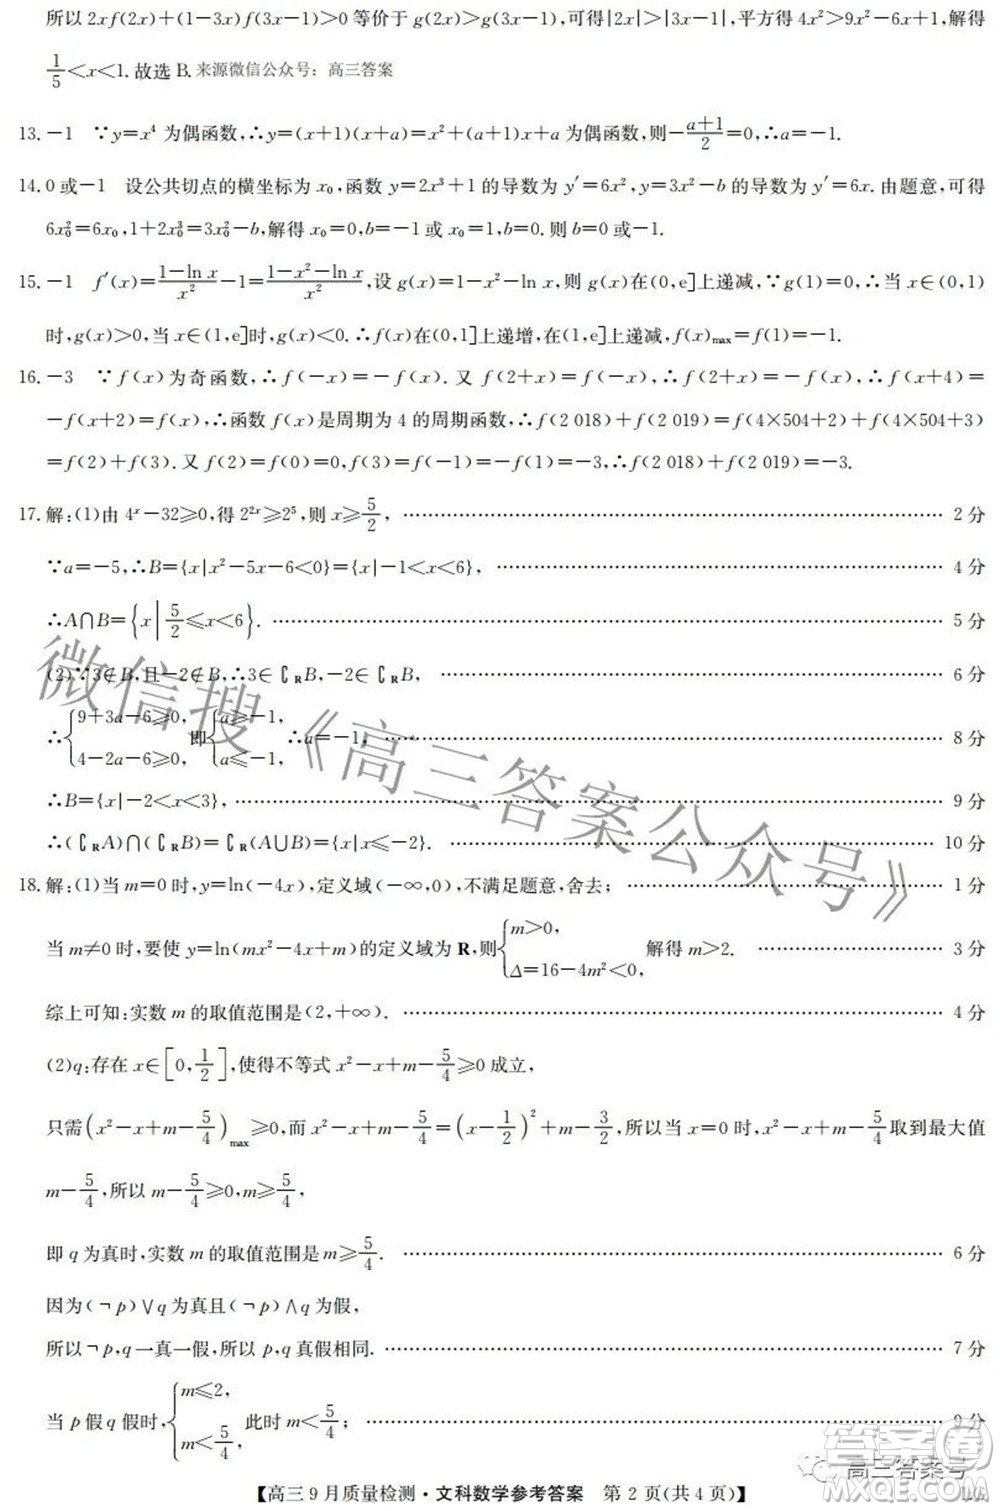 所以 2xf(2x)+(1-3x)f(3x-1)>0 等价于 g(2x)>g(3x-1),可得|2x|>|3x-1|,平方得 4x²>9x²-6x+1,解得
1/5<x<1.故选 B. 来源微信公众号：高三答案
13.-1 ∵y=x⁴ 为偶函数,∴y=(x+1)(x+a)=x²+(a+1)x+a 为偶函数,则-(a+1)/2=0,∴a=-1.
14.0 或-1 设公共切点的横坐标为 x₀,函数 y=2x³+1 的导数为 y′=6x²,y=3x²-b 的导数为 y′=6x.由题意,可得
6x₀²=6x₀,1+2x₀³=3x₀²-b,解得 x₀=0,b=-1 或 x₀=1,b=0.则 b=0 或-1.
15.-1 f′(x)=(1-ln x)/x²-1=(1-x²-ln x)/x²,设 g(x)=1-x²-ln x,则 g(x)在(0,e]上递减,∵g(1)=0,∴当 x∈(0,1)
时,g(x)>0,当 x∈(1,e]时,g(x)<0.∴f(x)在(0,1]上递增,在(1,e]上递减,f(x)max=f(1)=-1.
16.-3 ∵f(x)为奇函数,∴f(-x)=-f(x).又 f(2+x)=f(-x),∴f(2+x)=-f(x),∴f(x+4)=
-f(x+2)=f(x),∴函数 f(x)是周期为 4 的周期函数,∴f(2 018)+f(2 019)=f(4×504+2)+f(4×504+3)
=f(2)+f(3).又 f(2)=f(0)=0,f(3)=f(-1)=-f(1)=-3,∴f(2 018)+f(2 019)=-3.
17.解:(1)由 4ˣ-32≥0,得 2²ˣ≥2⁵,则 x≥5/2, …… 2 分
∵a=-5,∴B={x|x²-5x-6<0}={x|-1<x<6}, …… 4 分
∴A∩B={x|5/2≤x<6}. …… 5 分
(2)∵3∉B,且-2∉B,∴3∈∁RB,-2∈∁RB, …… 6 分
∴{9+3a-6≥0, 4-2a-6≥0, 即{a≥-1, a≤-1, ∴a=-1, …… 8 分
∴B={x|-2<x<3}, …… 9 分
∴(∁RA)∩(∁RB)=∁R(A∪B)={x|x≤-2}. …… 10 分
18.解:(1)当 m=0 时,y=ln(-4x),定义域(-∞,0),不满足题意,舍去; …… 1 分
当 m≠0 时,要使 y=ln(mx²-4x+m)的定义域为 R,则{m>0, Δ=16-4m²<0, 解得 m>2. …… 3 分
综上可知:实数 m 的取值范围是(2,+∞). …… 4 分
(2)q:存在 x∈[0,1/2],使得不等式 x²-x+m-5/4≥0 成立,
只需(x²-x+m-5/4)max≥0,而 x²-x+m-5/4=(x-1/2)²+m-3/2,所以当 x=0 时,x²-x+m-5/4取到最大值
m-5/4,所以 m-5/4≥0,m≥5/4,
即 q 为真时,实数 m 的取值范围是 m≥5/4. …… 6 分
因为(¬p)∨q 为真且(¬p)∧q 为假,
所以¬p,q 一真一假,所以 p,q 真假相同. …… 7 分
当 p 假 q 假时,{m≤2, m<5/4, 此时 m<5/4; …… 9 分
【高三 9 月质量检测·文科数学参考答案 第 2 页(共 4 页)】
微信搜《高三答案公众号》
高三答案号
答案圈